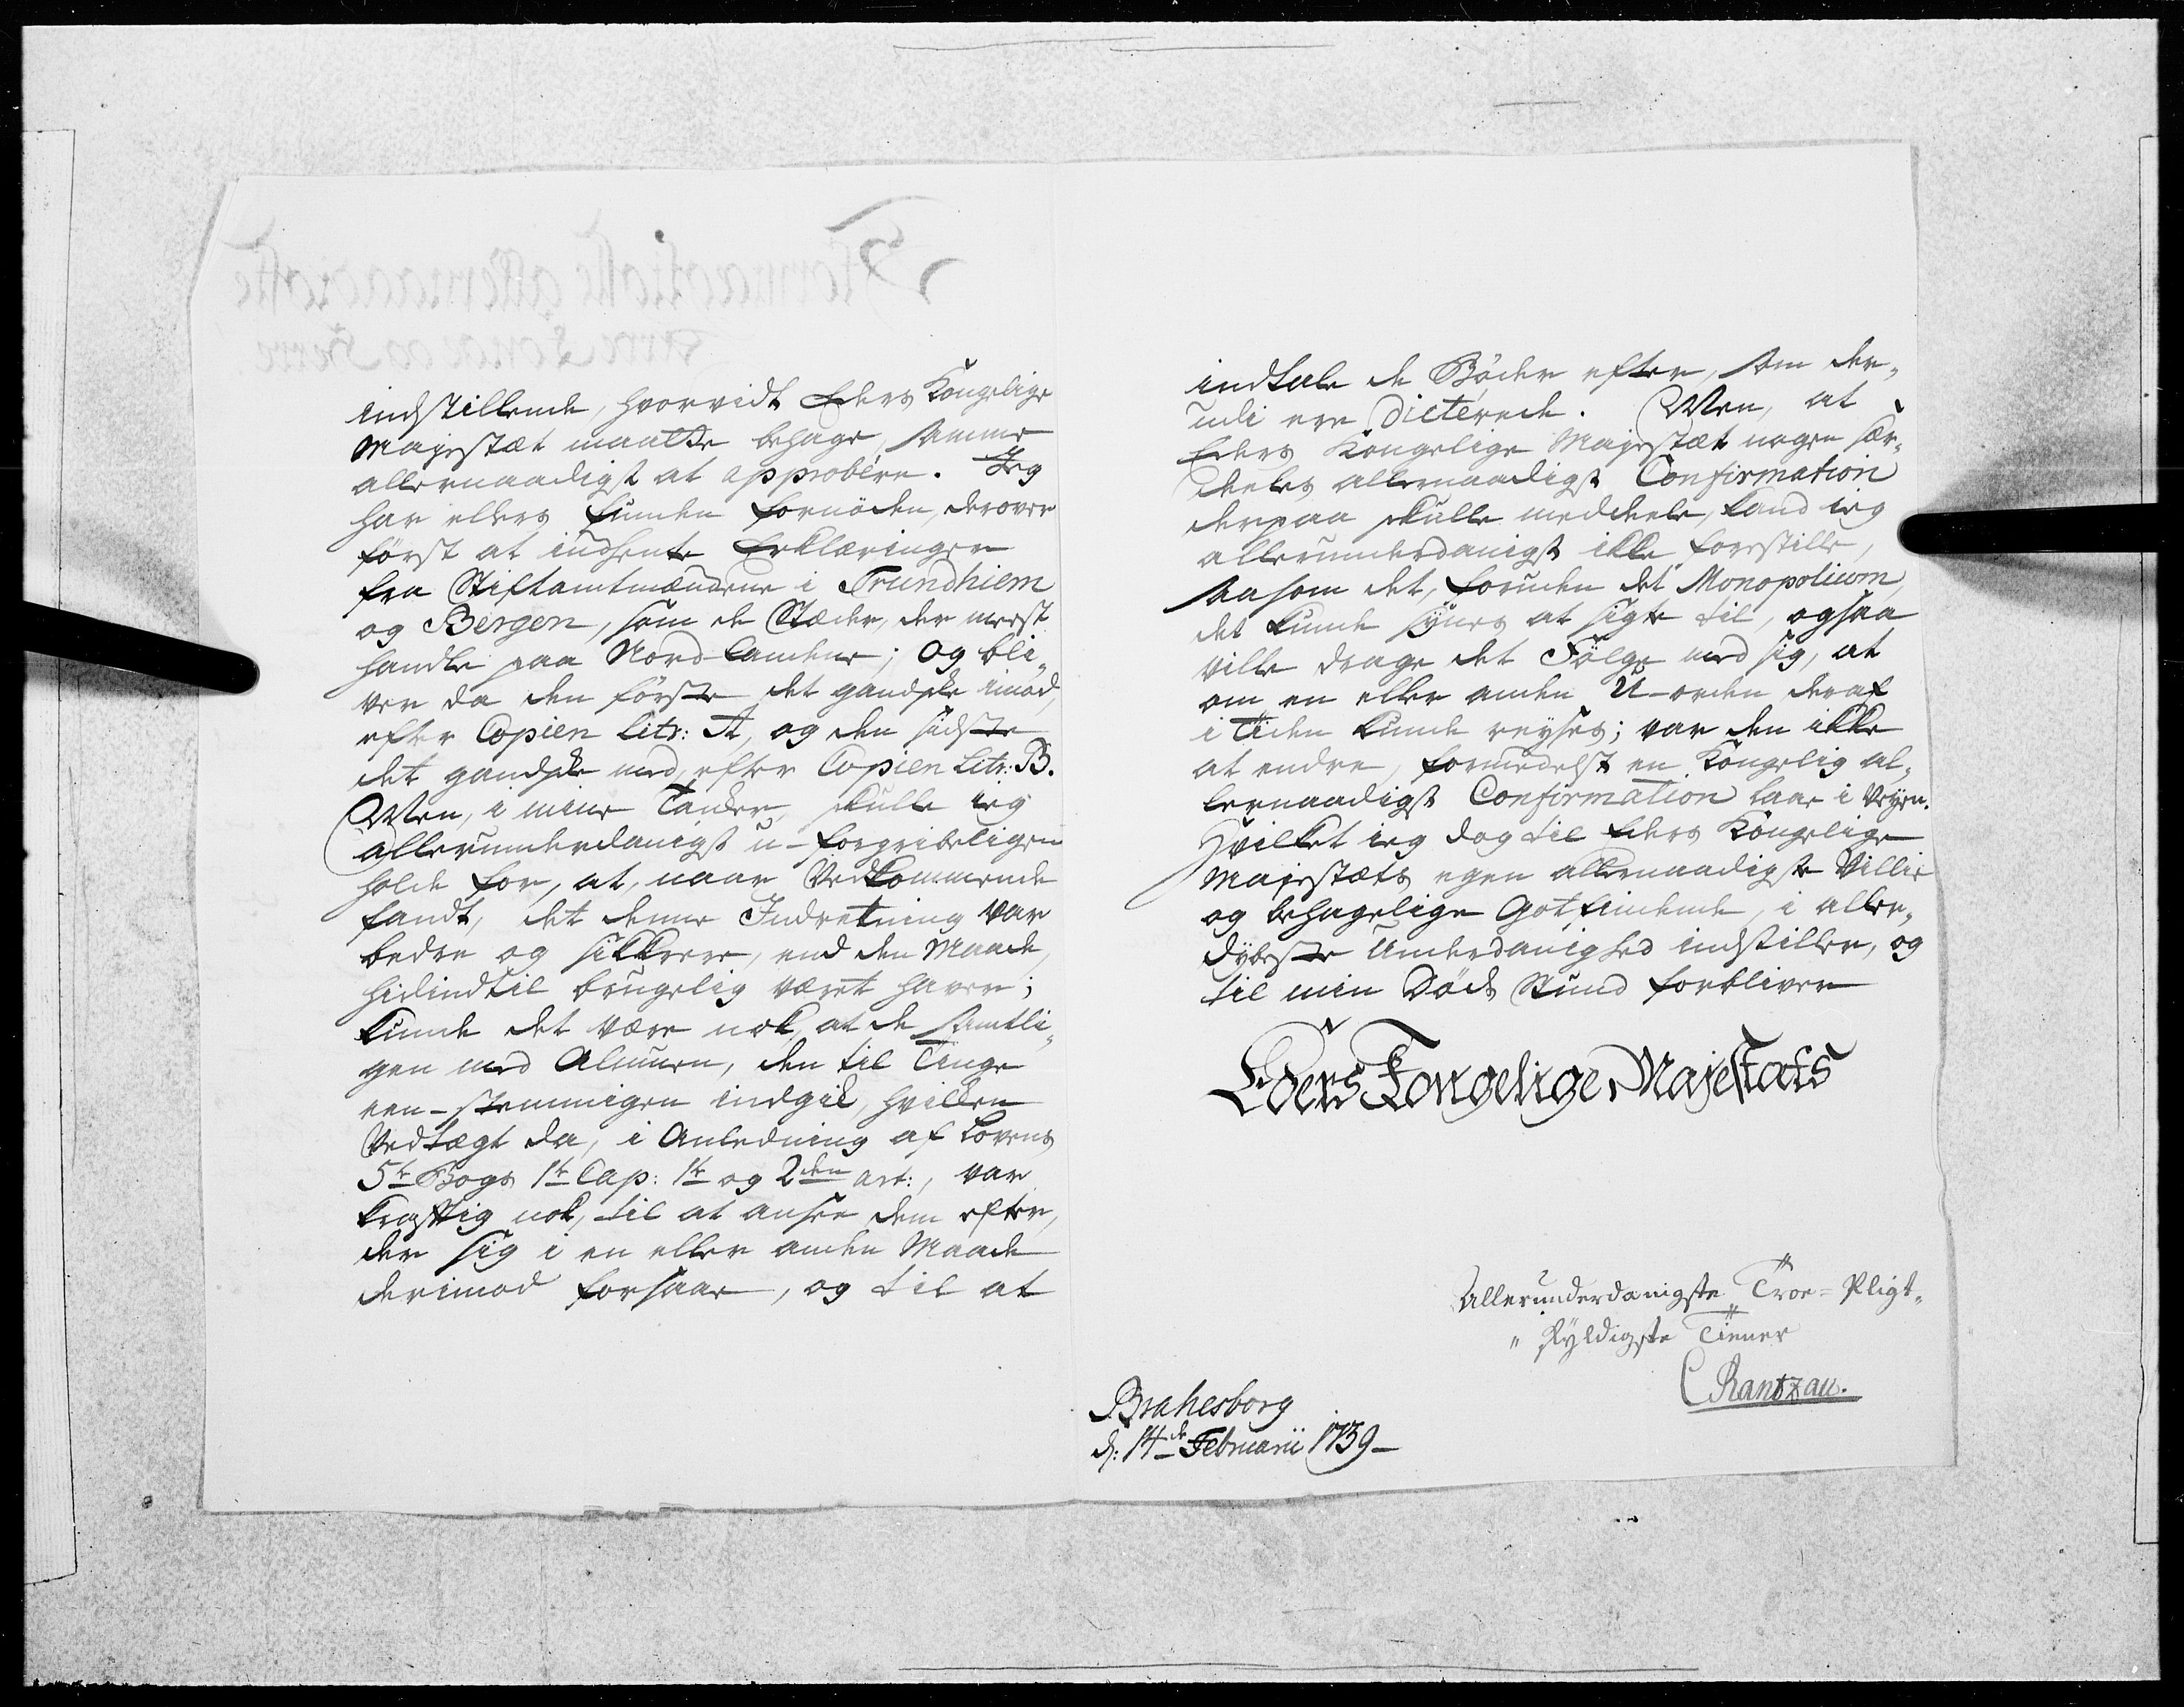 indstillende, hvorvidt Eders Kongelige
Majestæt maatte behage, samme
allernaadigst at approbére. Jeg
har ellers funden fornöden, derover
först at indhente Erklæringer
fra Stiftamtmændene i Trundhiem
og Bergen, som de Stæder, der meest
handle paa Nordlandene; Og bli„
ver da den förste det gandske imod,
efter Copien Litr: A, og den sidste
det gandske med, efter Copien Litr: B.
Men, i mine Tanker, skulle ieg
allerunderdanigst u-forgribeligen
holde for, at, naar Vedkommende
fandt, det denne Indretning var
bedre og sikkrere, end den Maade,
hidindtil brugelig været haver;
kunde det være nok, at de samtli„
gen med Almuen, den til Tinge
een-stemmigen indgik, hvilken
Vedtægt da, i Anledning af Lovens
5te Bogs 1te Cap: 1te og 2den art:, var
kraftig nok, til at ansee dem efter,
der sig i en eller anden Maade
derimod forsaae, og til at
indtale de Böder efter, som der„
udi ere dicterede. Men, at
Eders Kongelige Majestæt nogen sær„
deeles allernaadigst Confirmation
derpaa skulle meddeele, kand ieg
allerunderdanigst ikke forestille,
saasom det, foruden det Monopolium,
det kunde synes at sigte til, ogsaa
ville drage det Fölge med sig, at
om en eller anden U-orden deraf
i Tiden kunde reyses; var den ikke
at endre, formedelst en Kongelig al„
lernaadigst Confirmation laae i Veyen.
Hvilket ieg dog til Eders Kongelige
Majestæts egen allernaadigste Villie
og behagelige Gotfindende, i aller„
dybeste Underdanighed indstiller, og
til min Döds Stund forbliver
Eders Kongelige Majestæts
Allerunderdanigste Troe=Pligt„
„skyldigste Tiener
CRantzau.
Brahesborg
d: 14de Februarii 1739